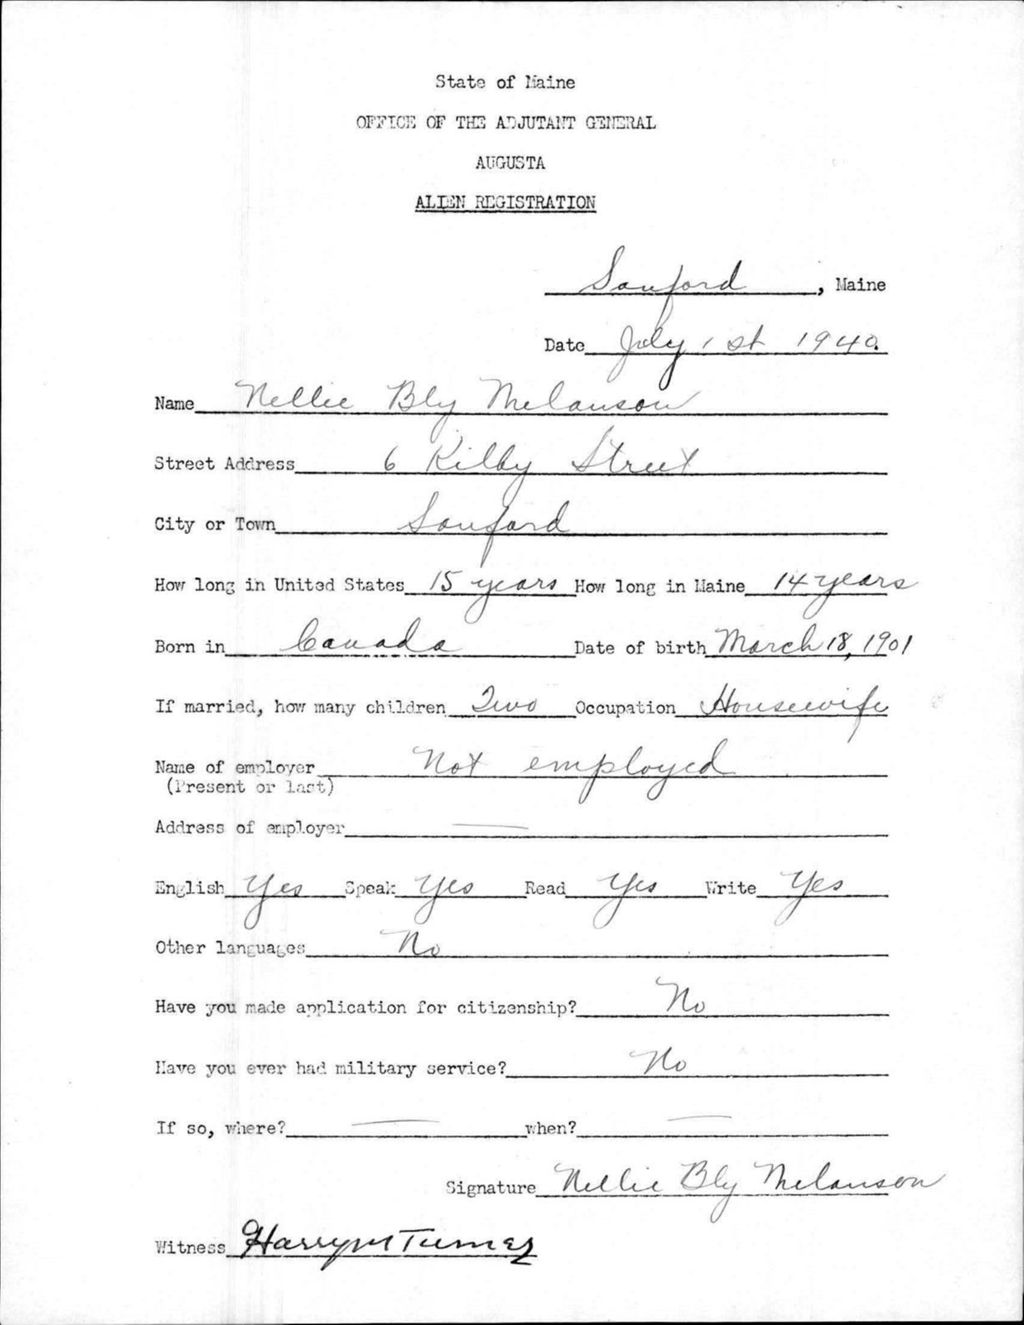 State of Maine
OFFICE OF THE ADJUTANT GENERAL
AUGUSTA
ALIEN REGISTRATION
Sanford, Maine
Date July 1st 1940.
Name Nellie Bly Melanson
Street Address 6 Kilby Street
City or Town Sanford
How long in United States 15 years How long in Maine 14 years
Born in Canada Date of birth March 18, 1901
If married, how many children Two Occupation Housewife
Name of employer Not employed
(Present or last)
Address of employer —
English Yes Speak Yes Read Yes Write Yes
Other languages No
Have you made application for citizenship? No
Have you ever had military service? No
If so, where? — when? —
Signature Nellie Bly Melanson
Witness Harry M Turner